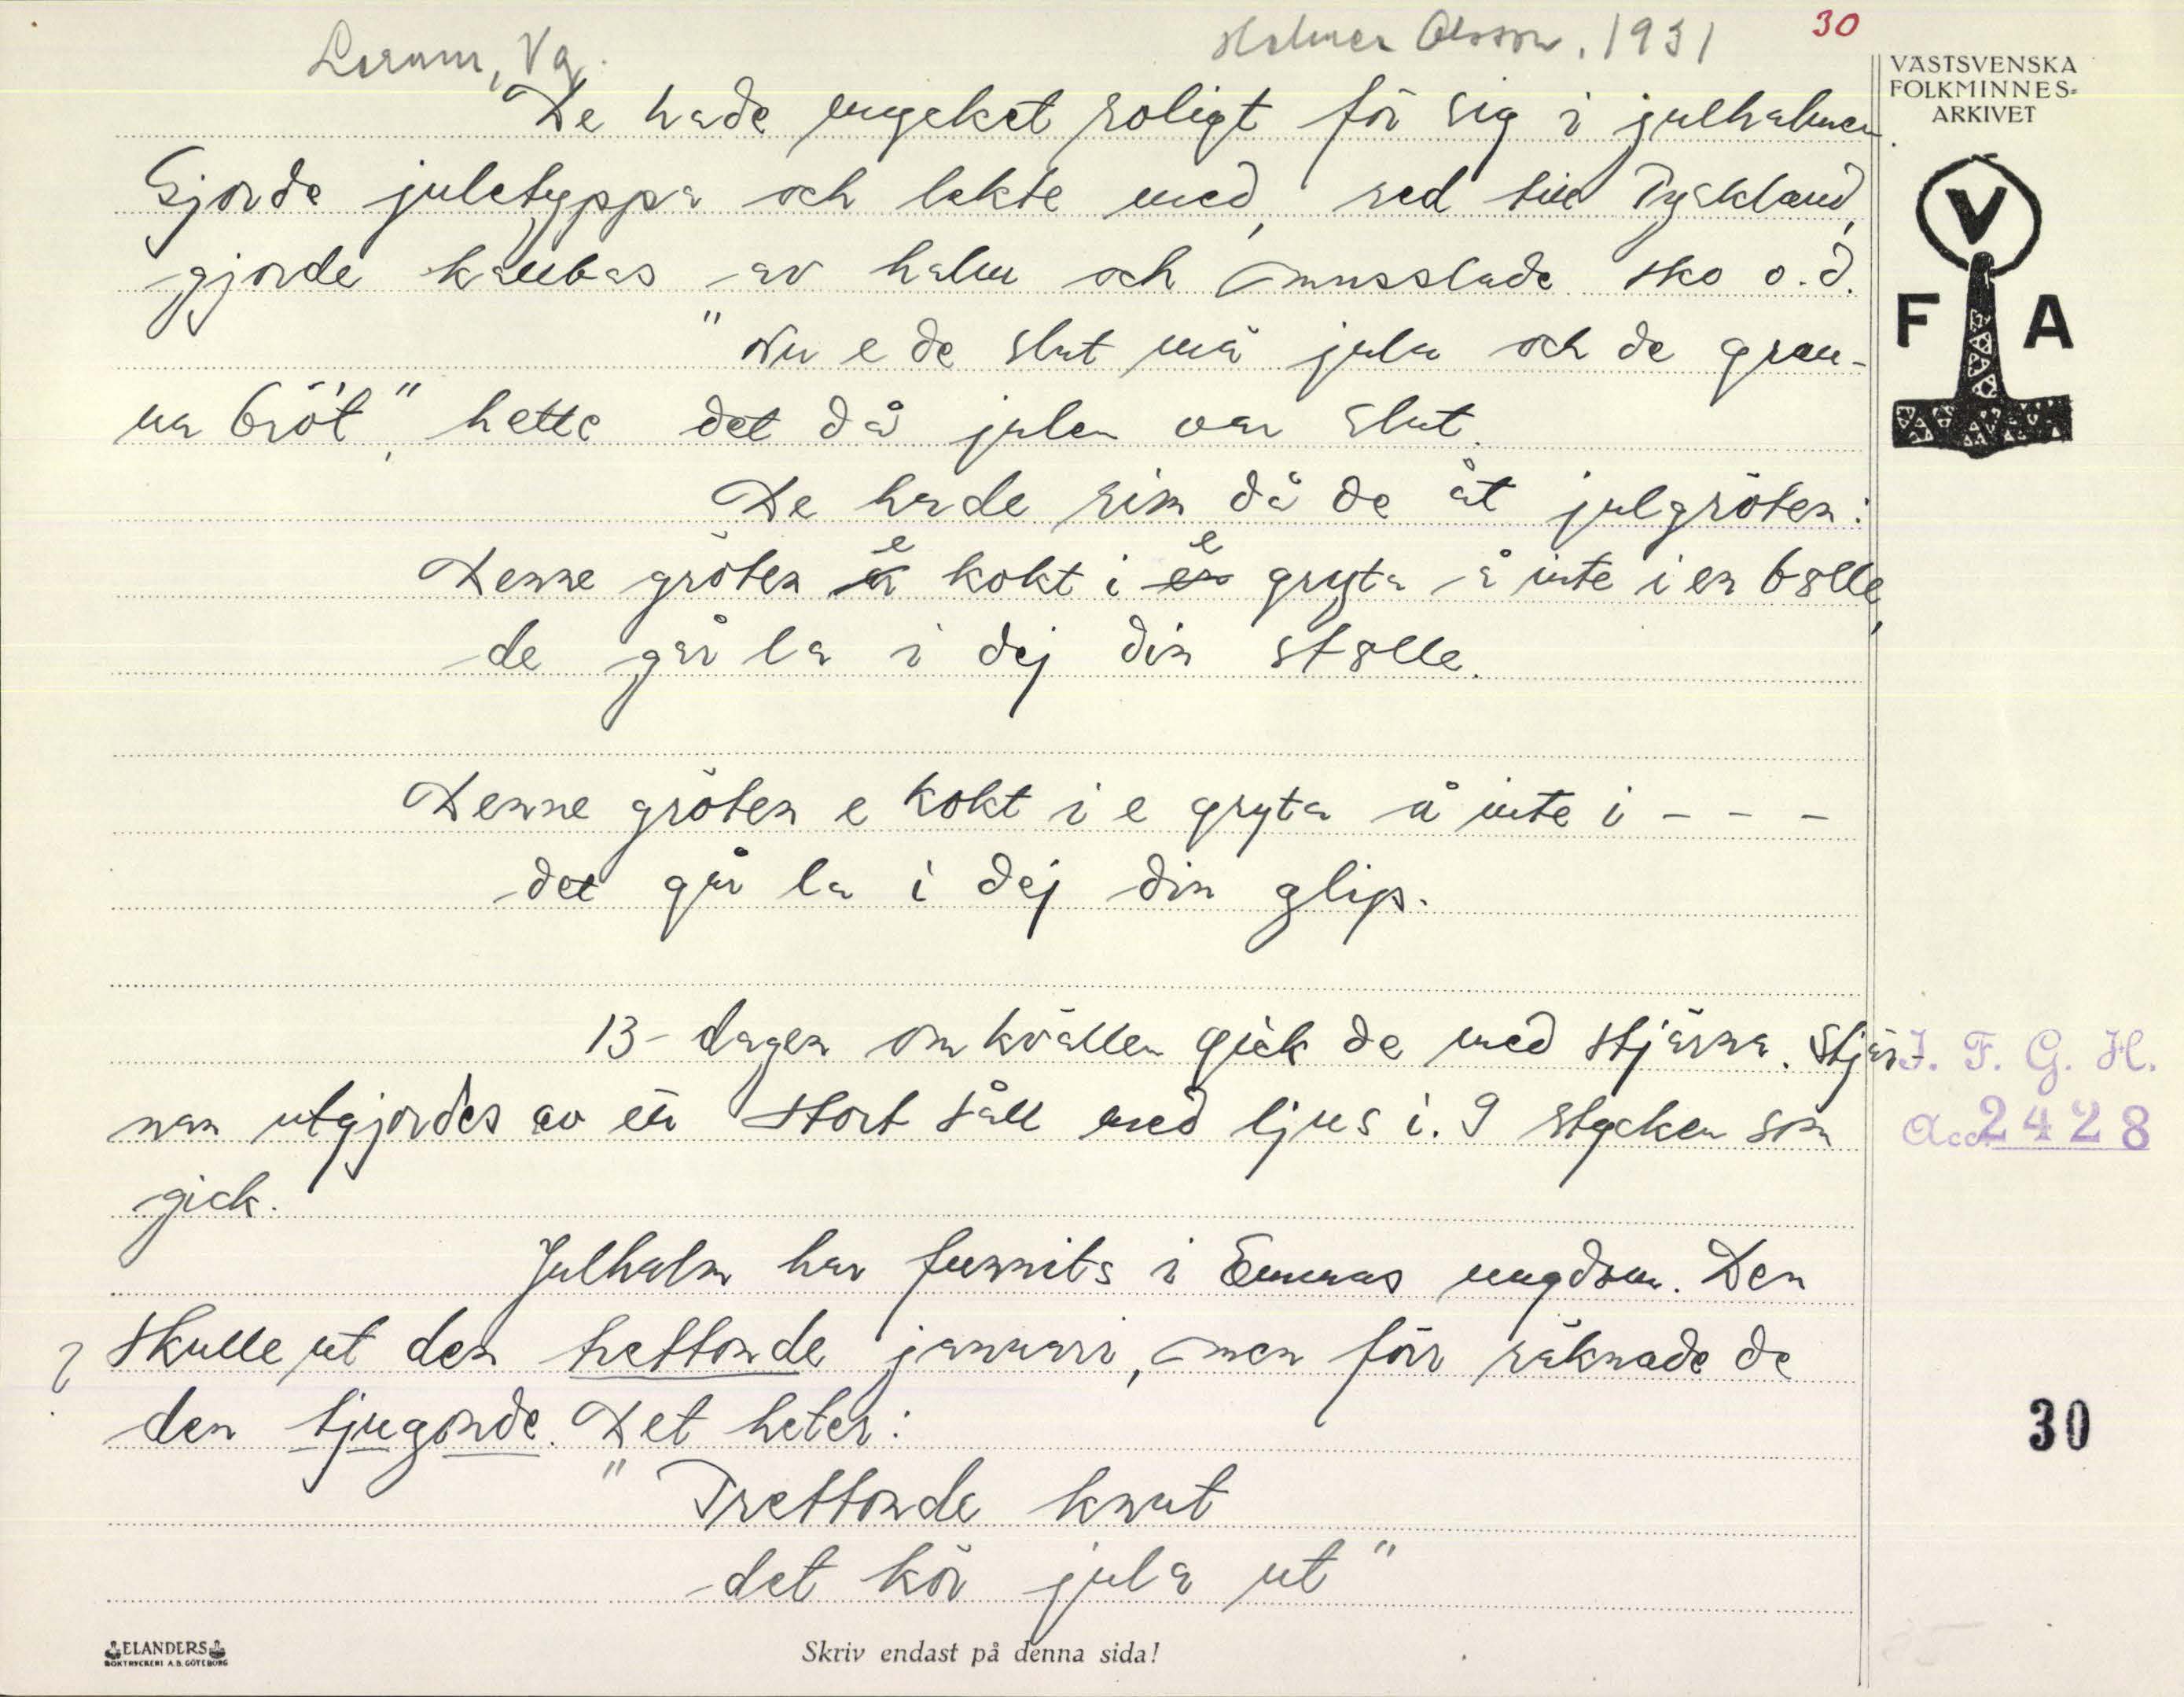 Lerum, Vg. Helmer Olsson, 1931 30
VÄSTSVENSKA
FOLKMINNES-
ARKIVET
V
F A
De hade mycket roligt för sig i julhalmen
Gjorde juletyppa och lekte med, red till Tyskland,
gjorde av halm och musslade sko o.d.
"Nu e de slut mä jula och de gran-
na bröt", hette det då julen var slut.
De hade rim då de åt julgröten:
Denne gröten e kokt i e gryta å inte i en bålle,
de går la i dej din stålle.
Denne gröten e kokt i e gryta å inte i - - -
det går la i dej din glip.
13-dagen om kvällen gick de med stjärna. Stjär-
nan utgjordes av ett stort såll med ljus i. 9 stycken som
gick.
Julhalm har funnits i Emmas ungdom. Den
? skulle ut den trettonde januari, men förr räknade de
den tjugonde. Det heter:
"Trettonda knut
det kör jula ut"
I. F. G. H.
Acc. 2428
30
ELANDERS
BOKTRYCKERI A.B. GÖTEBORG
Skriv endast på denna sida!